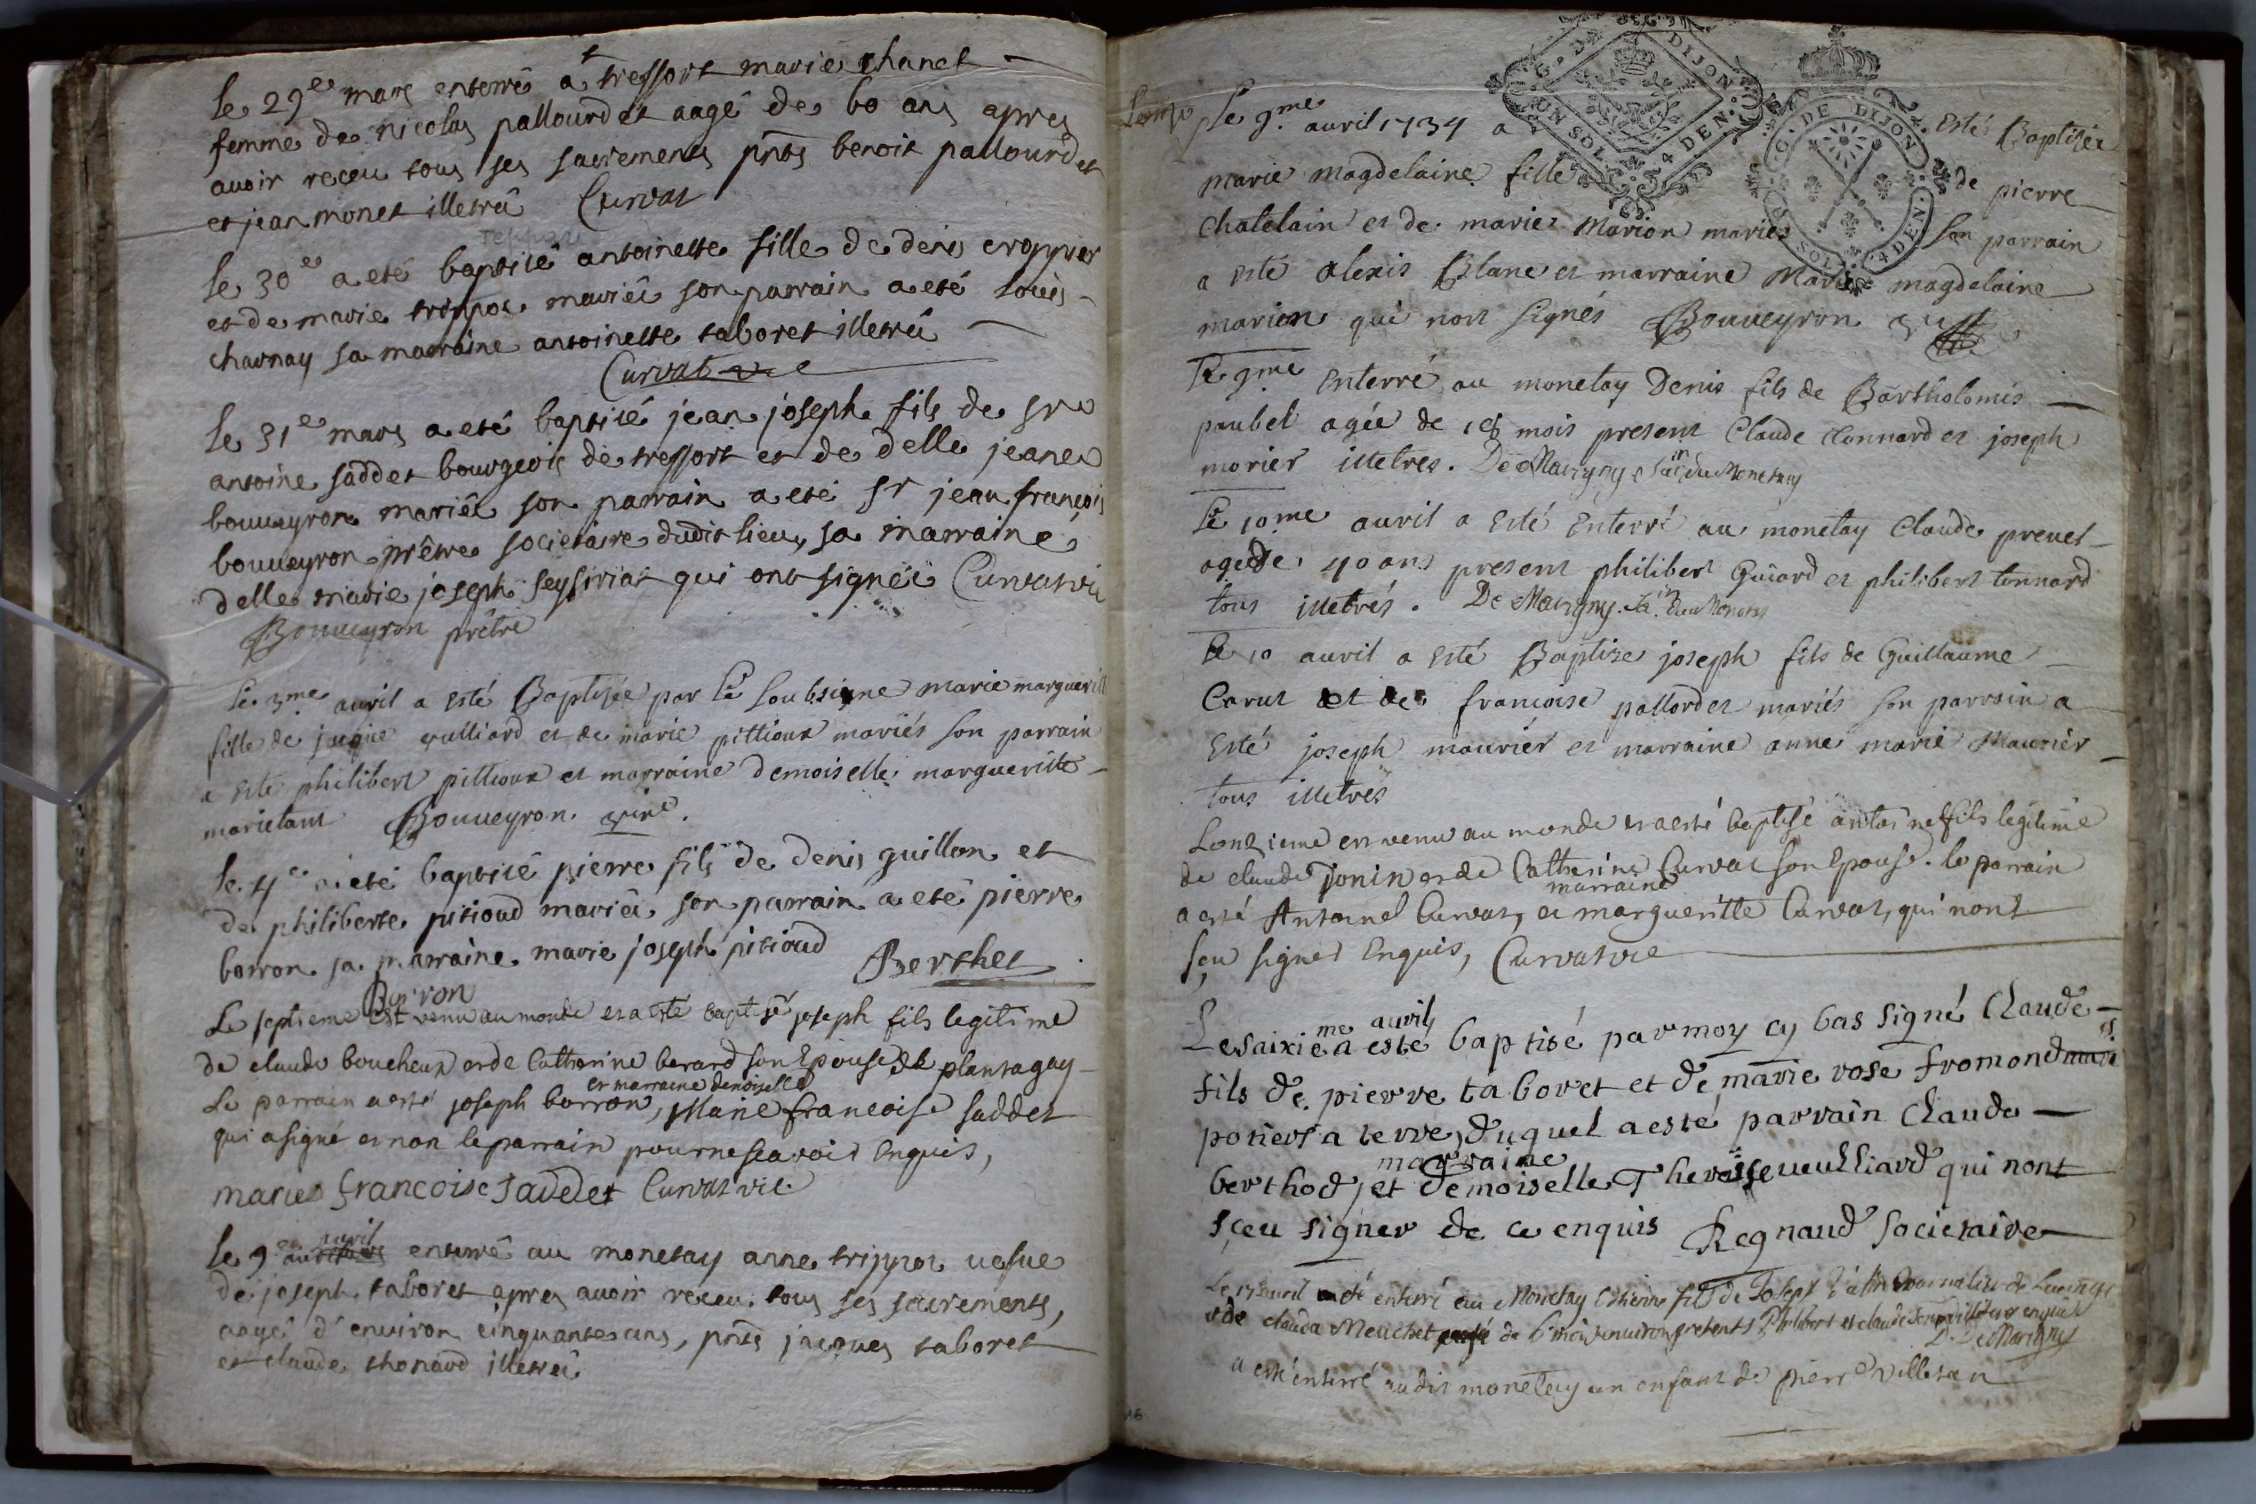 le 29e mars enterré a tressort marie chanel
femme de nicolas pallourdet aagé de 60 ans apres
avoir receu tous ses sacrements pnts benoit pallourdet
et jean monet illetré Curvat
le 30e a eté baptisé antoinette fille de denis croppier
et de marie trippoz mariés son parrain a eté louis
charnay sa marraine antoinette taboret illetré
Curvat vic
le 31e mars a eté baptisé jean joseph fils de sr
antoine saddet bourgeois de tressort et de delle jeane
bouveyron mariés son parrain a eté sr jean françois
bouveyron prêtre societaire dudit lieu, sa marraine
delle marie joseph seysiriat qui ont signéé Curvat vic
Bouveyron prêtre
le 3me avril a esté Baptisée par le soubsigne marie marguerit
fille de jaque vulliard et de marie pittioux mariés son parrain
a esté philibert pittioux et marraine demoiselle margueritte
marietant Bouveyron vire.
le 4e a eté baptisé pierre fils de denis guillon et
de philiberte pitioud mariés son parrain a eté pierre
borron sa marraine marie joseph pitioud Berthet
Borron
Le septieme est venu au monde et a esté baptisé joseph fils legitime
de claude boucheux et de Catherine berard son Epouse de plantagay
et marraine demoiselle
Le parrain a esté joseph borron, Marie francoise saddet
qui a signé et non le parrain pour ne scavoir enquis,
marie francoise sadet Curvat vic
avril
le 9e enterré au monetay anne trippoz vefue
de joseph taboret apres avoir receu tous ses sacrements,
aagé d'environ cinquante ans, pnts jacques taboret
et claude thonard illetré
Le 9me avril 1734 a Esté Baptisée
marie magdelaine fille de pierre
Chatelain et de marie Marion mariés son parrain
a esté alexis Blanc et marraine Marie magdelaine
marion qui nont signés Bouveyron
G. DE DIJON
UN SOL 4 DEN.
G. DE DIJON
SOL 4 DEN.
Le 9me Enterré au monetay Denis fils de Bartholomis
paubel agée de mois present Claude tonnard et joseph
morier illetres. De Marigny du Monetay
Le 10me avril a Esté Enterré au monetay Claude prevet
agede 40 ans present philibert Guiard et philibert tonnard
tous illetrés. De Marigny
Le 10 avril a Esté Baptize joseph fils de Guillaume
Carut et de francoise pallordet mariés son parrain a
Esté joseph mauriér et marraine anne marie Mauriér
tous illetrés
Lonzieme est venu au monde et a esté baptisé antoine fils légitime
de claude Jonin et de Catherine Curvat son Epouse. le parrain
marraine
a esté Antoine Curvat, et margueritte Curvat, qui nont
sçu signer Enquis, Curvat vic
me avril
Le saixie a esté baptisé par moy cy bas signé Claude
fils de pierre taboret et de marie rose fromond
potiers a terre, duquel a esté parrain Claude
marraine
berthod, et demoiselle Theresse veulliard qui nont
sçeu signer de ce enquis Regnaud societaire
Le 17 avril a eté enterré au Monetay Etienne fils de Joseph
et de claudA Meuchet de 6 mois environ presents Philibert et claude
De Marigny
a esté enterré audit monetay un enfant de pierre villeran